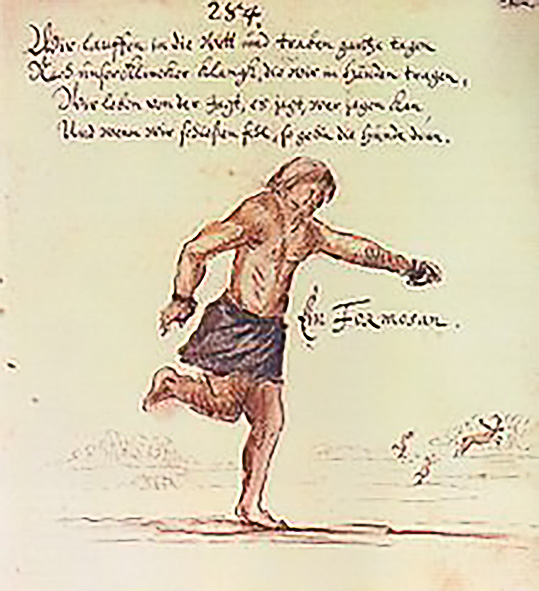 284.
Wir lauffen in die Wett und traben gantze tagen
Nach unser Klincker klangk, die wir in Händen tragen,
Wir leben von der Jagt, es jagt, wer jagen kan
Und wenn wir schießen fehl, so gehn die Hunde dran.
Ein Formosan.